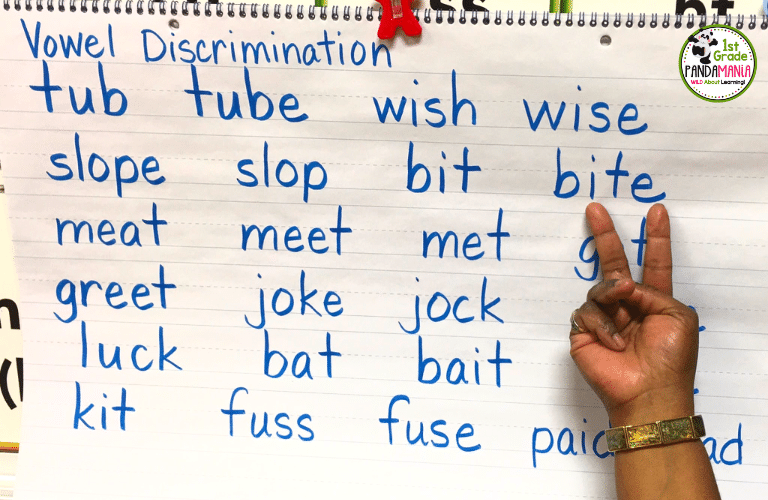 Vowel Discrimination
1st
Grade
PANDAMANIA
WILD About Learning!
tub tube wish wise
slope slop bit bite
meat meet met
greet joke jock
luck bat bait
kit fuss fuse paid